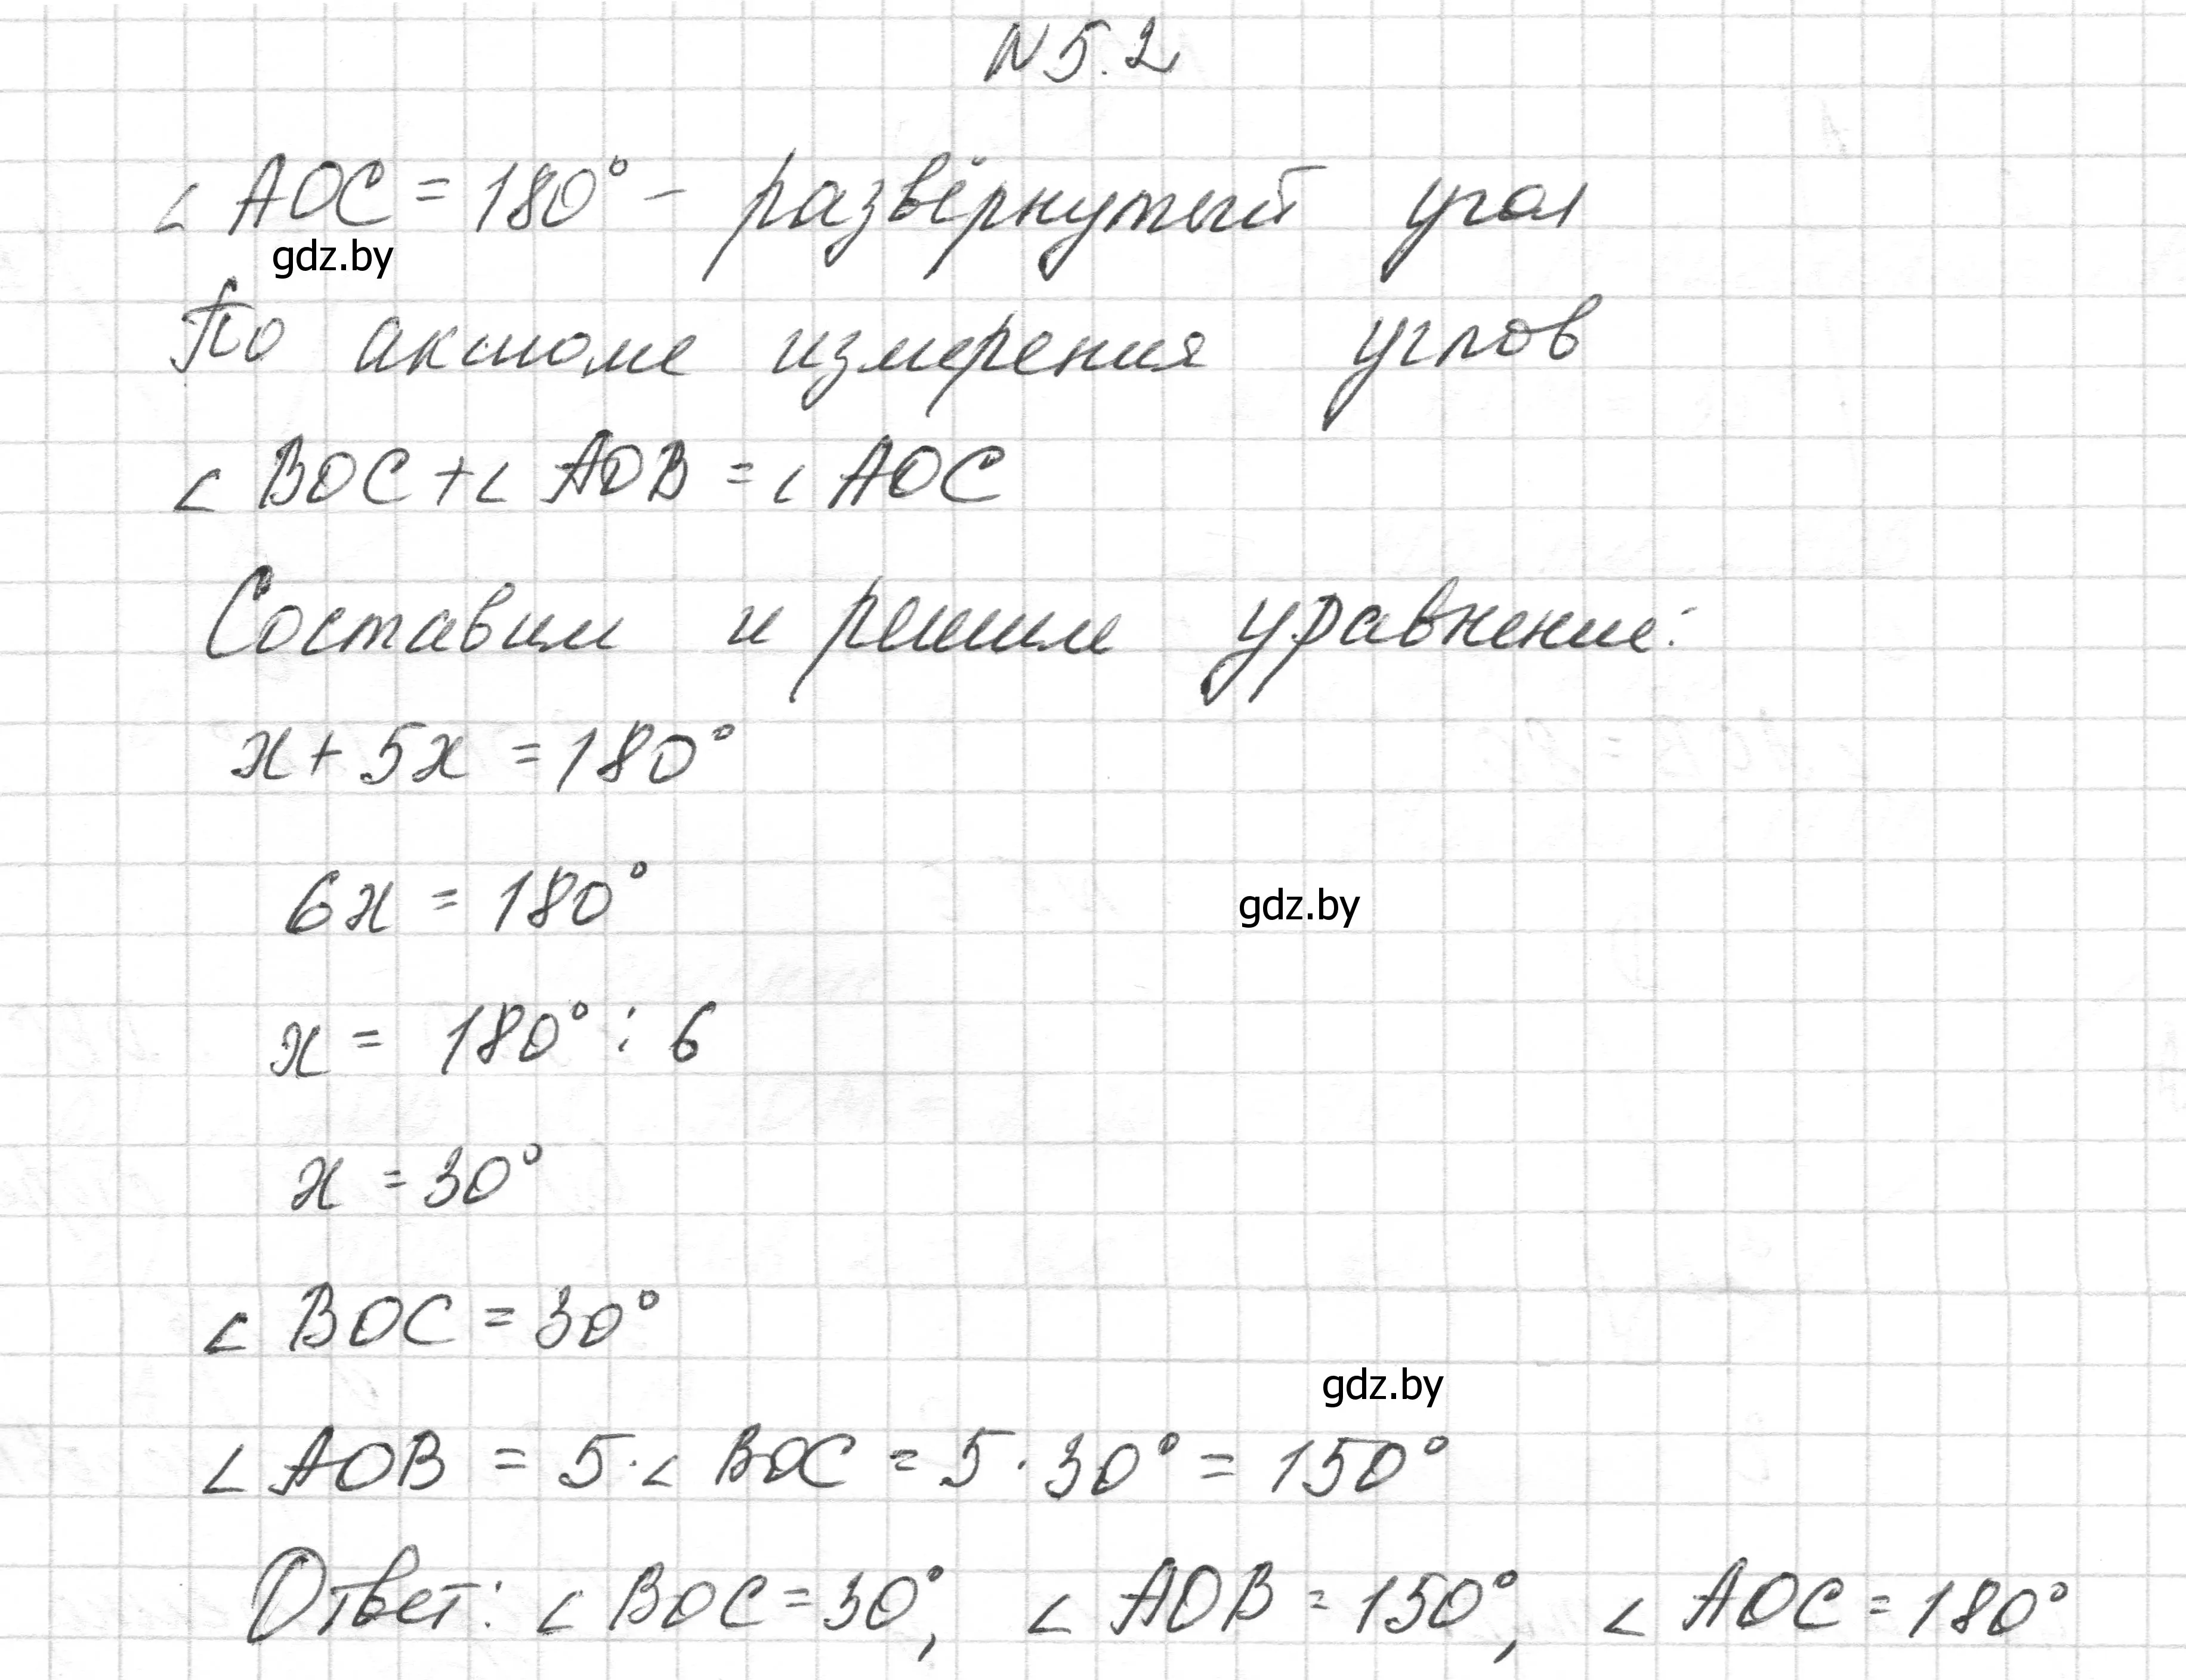 N 5.2
∠ AOC = 180° – развёрнутый угол
gdz.by
По аксиоме измерения углов
∠ BOC + ∠ AOB = ∠ AOC
Составим и решим уравнение:
x + 5x = 180°
6x = 180°
gdz.by
x = 180° : 6
x = 30°
∠ BOC = 30°
gdz.by
∠ AOB = 5 · ∠ BOC = 5 · 30° = 150°
Ответ: ∠ BOC = 30°, ∠ AOB = 150°, ∠ AOC = 180°